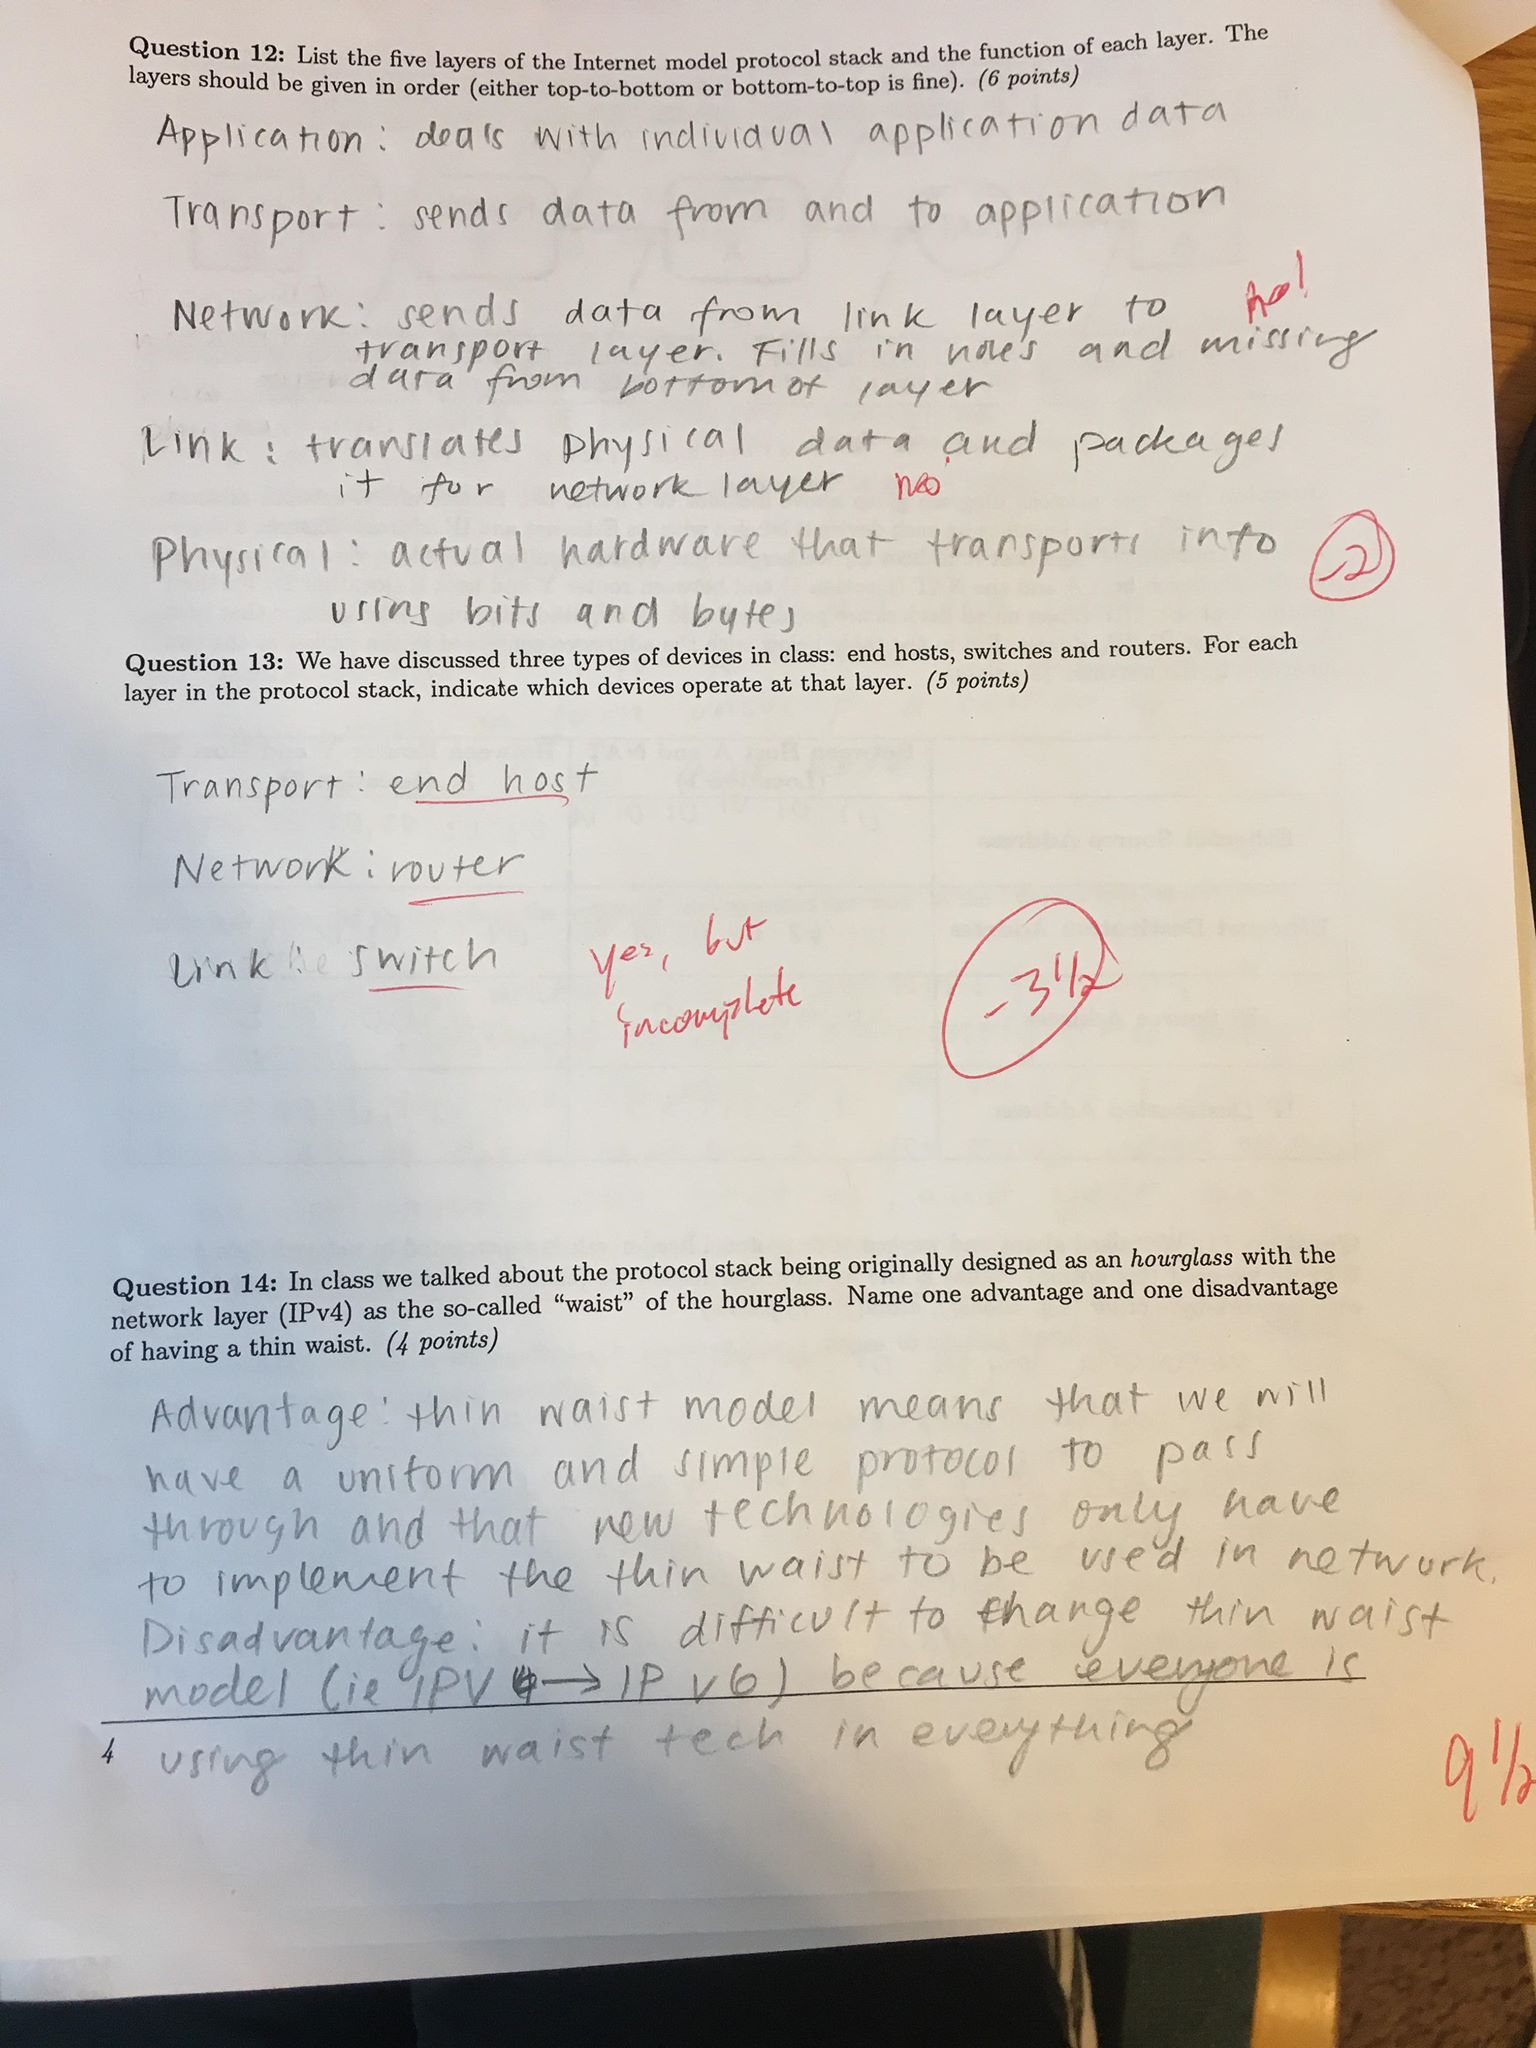 Question 12: List the five layers of the Internet model protocol stack and the function of each layer. The
layers should be given in order (either top-to-bottom or bottom-to-top is fine). (6 points)
Application: deals with individual application data
Transport: sends data from and to application
Network: sends data from link layer to
no!
transport layer. Fills in holes and missing
data from bottom of layer
Link: translates physical data and packages
it for network layer no
Physical: actual hardware that transports info
-2
using bits and bytes
Question 13: We have discussed three types of devices in class: end hosts, switches and routers. For each
layer in the protocol stack, indicate which devices operate at that layer. (5 points)
Transport: end host
Network: router
Link: switch
yes, but
incomplete
-3 1/2
Question 14: In class we talked about the protocol stack being originally designed as an hourglass with the
network layer (IPv4) as the so-called “waist” of the hourglass. Name one advantage and one disadvantage
of having a thin waist. (4 points)
Advantage: thin waist model means that we will
have a uniform and simple protocol to pass
through and that new technologies only have
to implement the thin waist to be used in network.
Disadvantage: it is difficult to change thin waist
model (ie IPV4 → IP v6) because everyone is
4
using thin waist tech in everything
9 1/2